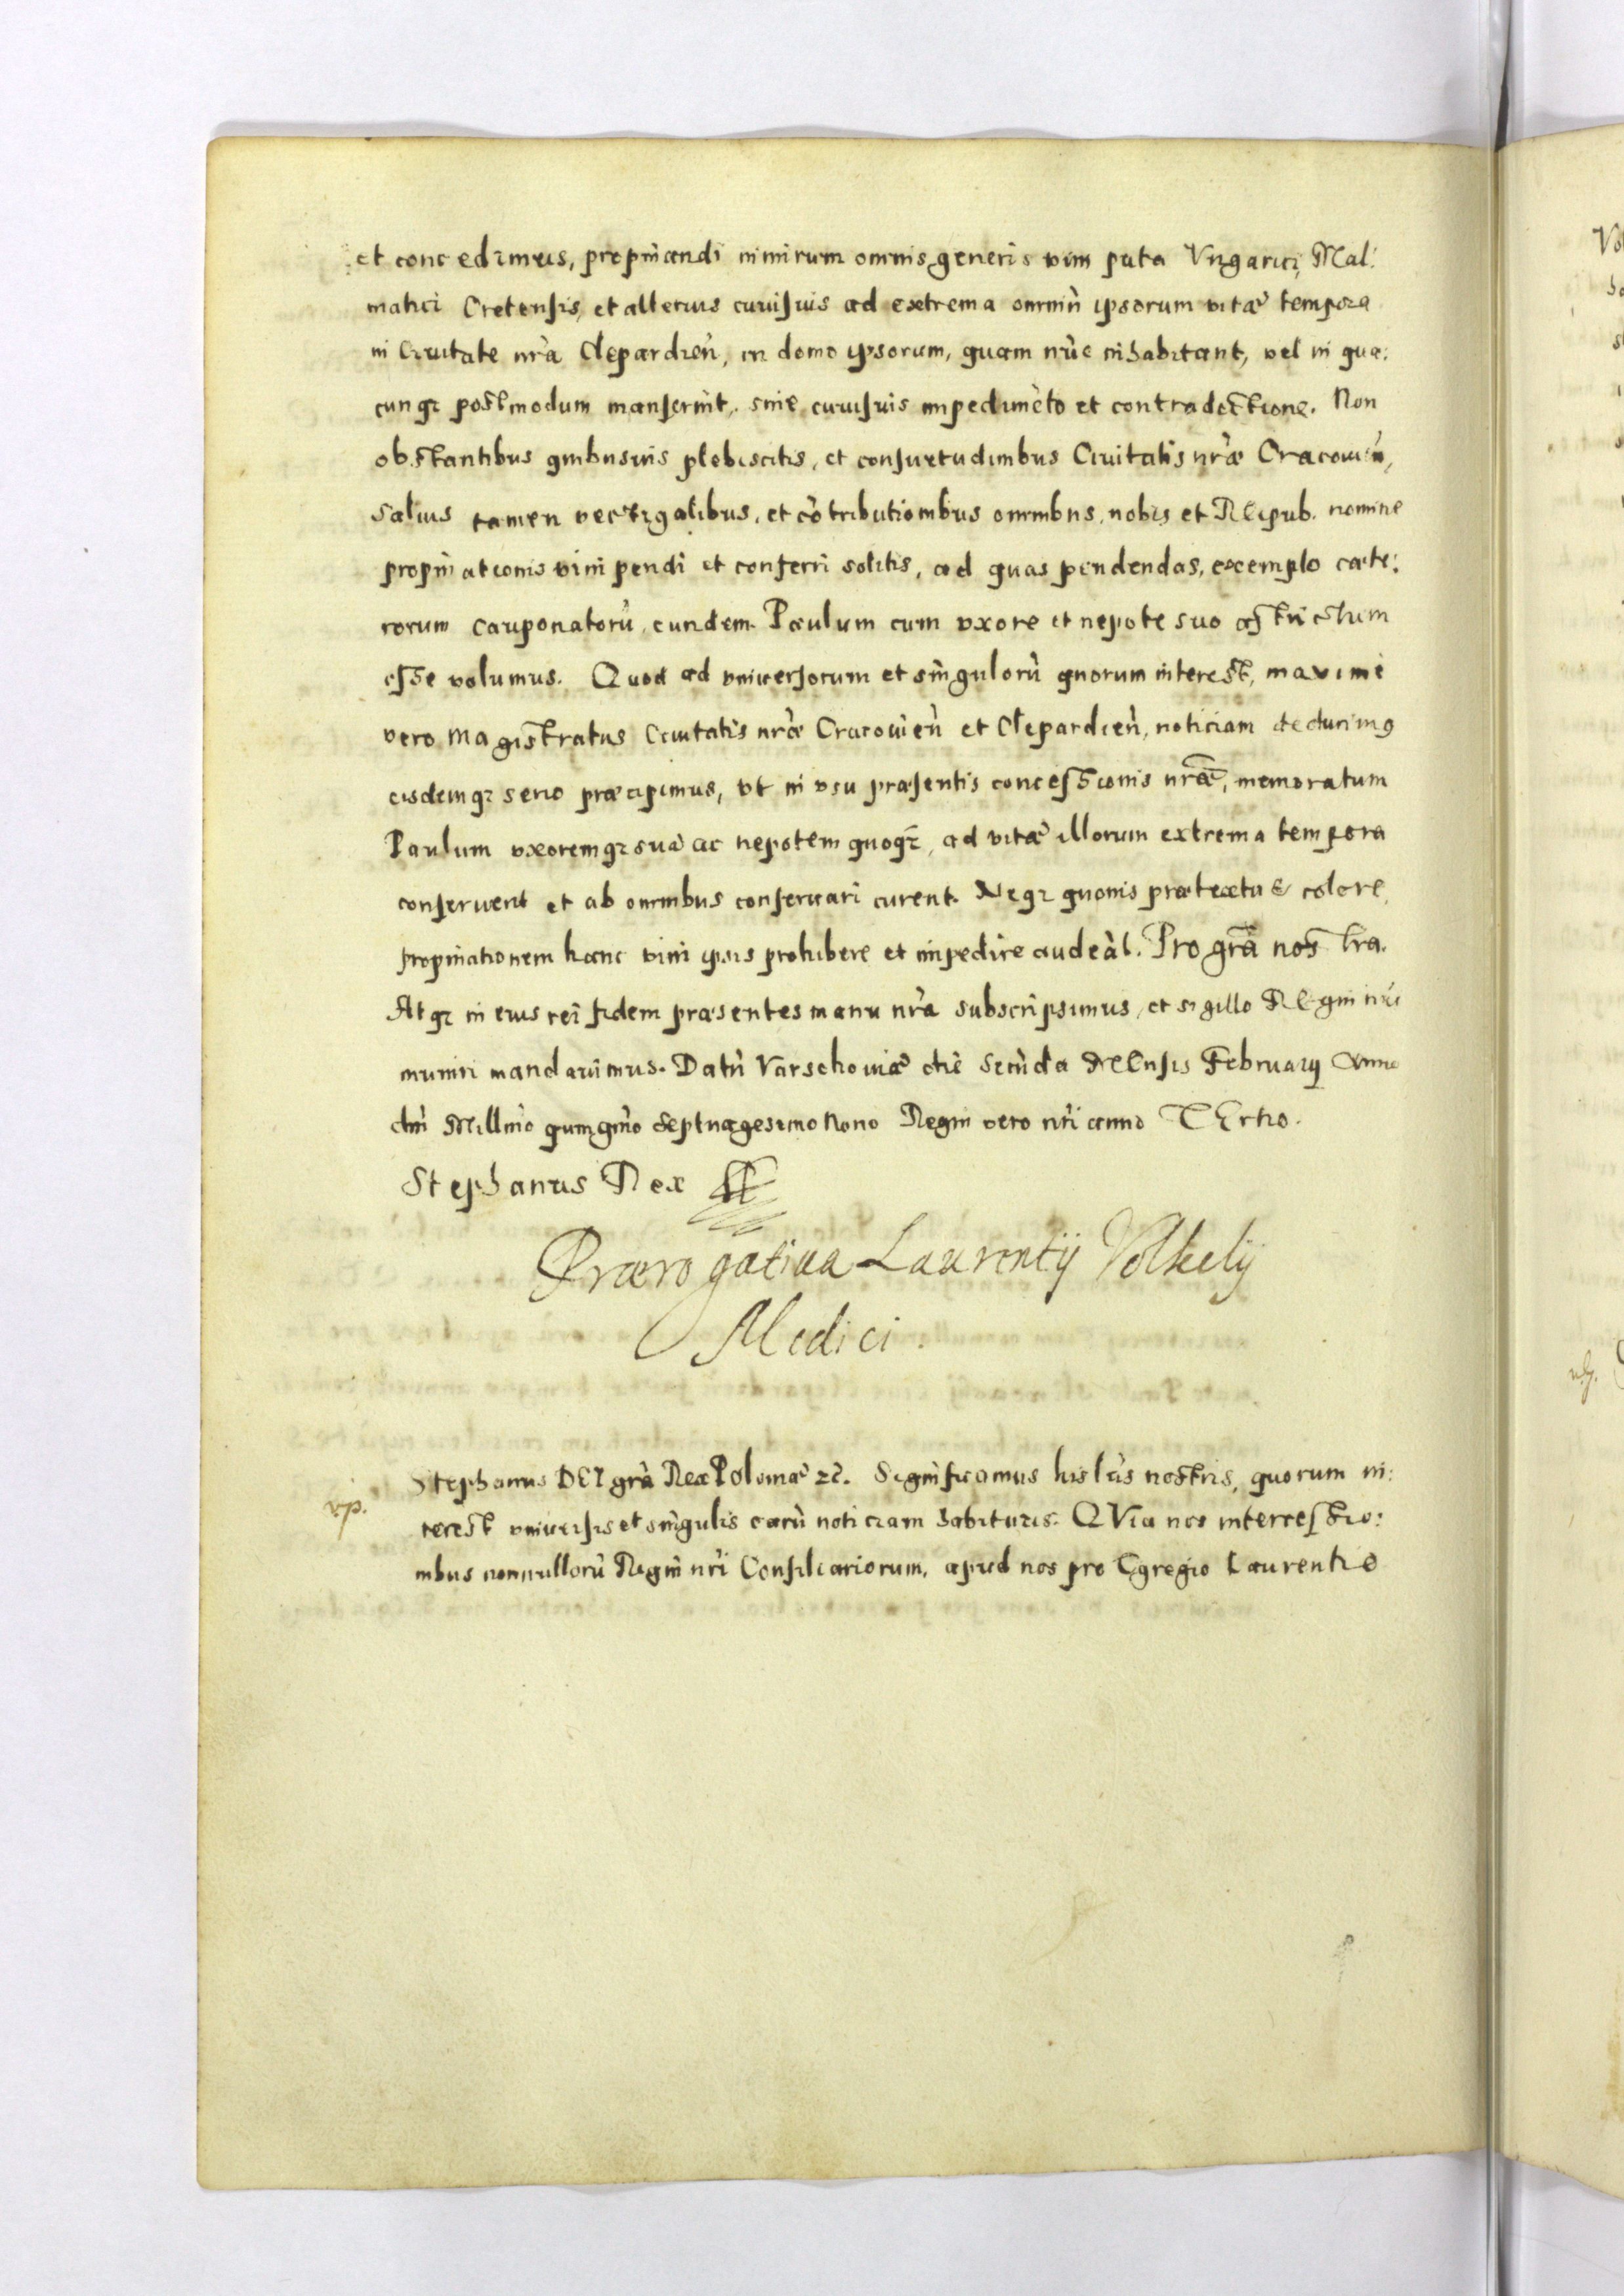 et concedimus, propinandi nimirum omnis generis vini puta Vngarici, Mal:
matici Cretensis, et alterius cuiusuis ad extrema omniũ ipsorum vitæ tempora
in Ciuitate nrà Clepardieñ, in domo ipsorum, quam nũc inhabitant, vel in qua:
cunqꝫ postmodum manserint, sine cuiusuis impedimẽto et contradictione. Non
obstantibus quibusuis plebiscitis, et consuetudinibus Ciuitatis nræ Cracouieñ,
saluis tamen vectigalibus, et cõtributionibus omnibus, nobis et Reipub. nomine
propinationis vini pendi et conferri solitis, ad quas pendendas, exemplo cæte:
rorum cauponatorũ, eundem Paulum cum vxore et nepote suo astrictum
esse volumus. Quod ad vniuersorum et singulorũ quorum interest, maxime
vero Magistratus Ciuitatis nræ Cracouieñ et Clepardieñ, noticiam deducimus
eisdemqꝫ serio præcipimus, vt in vsu præsentis concessionis nræ, memoratum
Paulum vxoremqꝫ suã ac nepotem quoqꝫ, ad vitæ illorum extrema tempora
conseruent et ab omnibus conseruari curent. Neqꝫ quouis prætextu & colore,
propinationem hanc vini ipsis prohibere et impedire audeãt. Pro grã nostra.
Atqꝫ in eius rei fidem præsentes manu nrà subscripsimus, et sigillo Regni nri
muniri mandauimus. Datũ Varschouiæ die secũda Mensis Februarij Anno
dñi Millmo quingmo septuagesimo Nono Regni vero nri anno Tertio.
Stephanus Rex
Prærogatiua Laurentij Volkelij
Medici.
Stephanus DEI grà Rex Poloniæ zc̃. Significamus his lris nostris, quorum in:
vp.
terest vniuersis et singulis earũ noticiam habituris. QVia nos intercessio:
nibus nonnullorũ Regni nri Consiliariorum, apud nos pro Egregio Laurentio